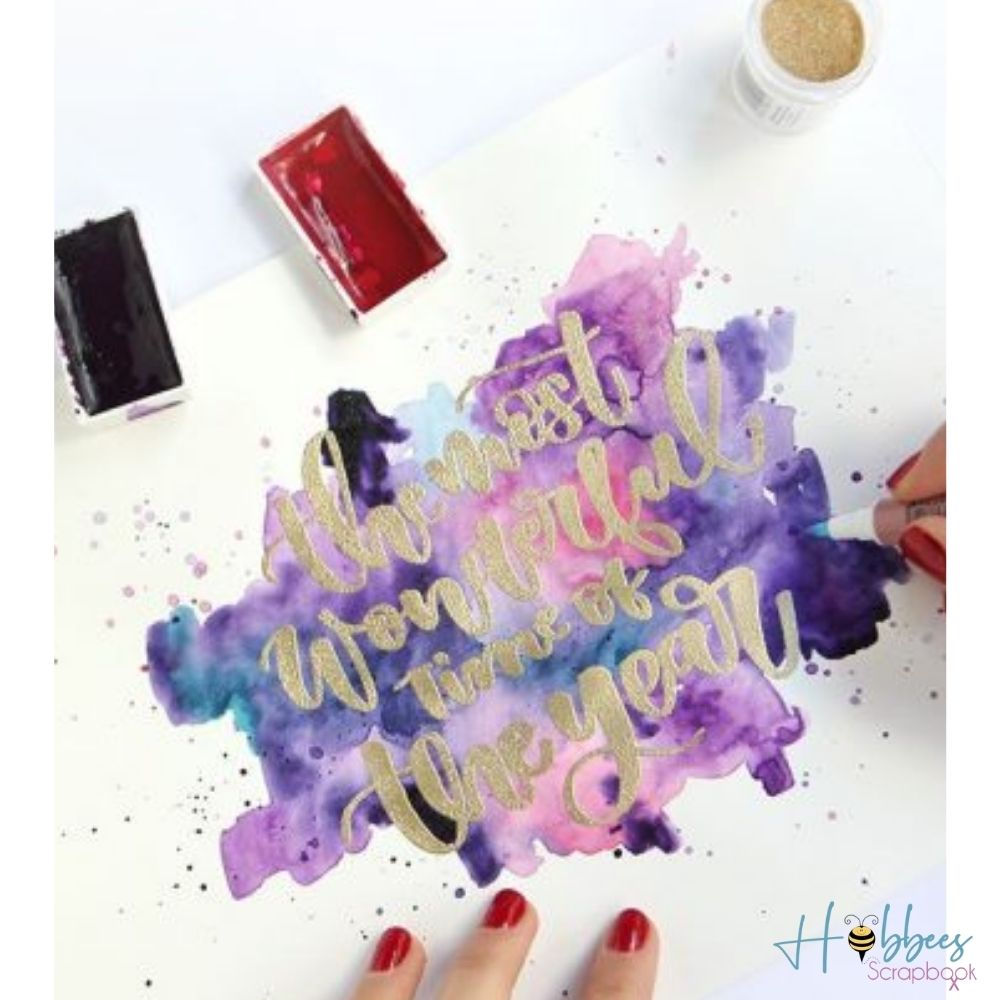 the most
wonderful
time of
the year
Hobbees
Scrapbook